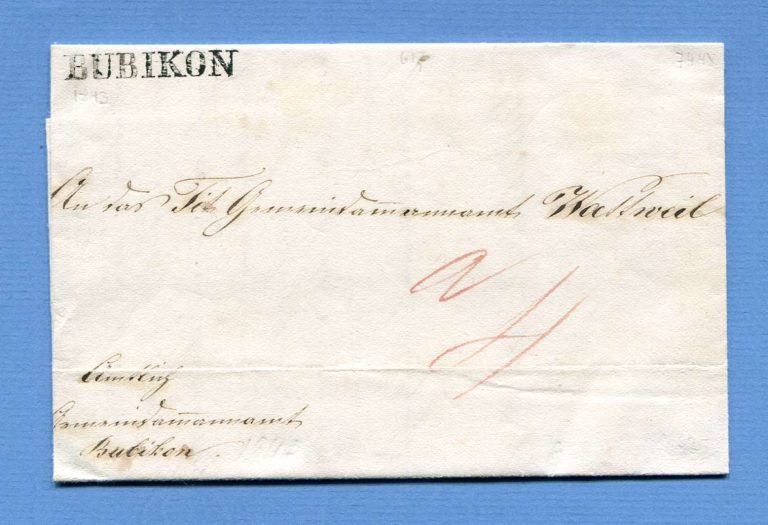 BUBIKON
An das Tit. Gemeindammannamt Wattweil
Amtlich
Gemeindammannamt
Bubikon